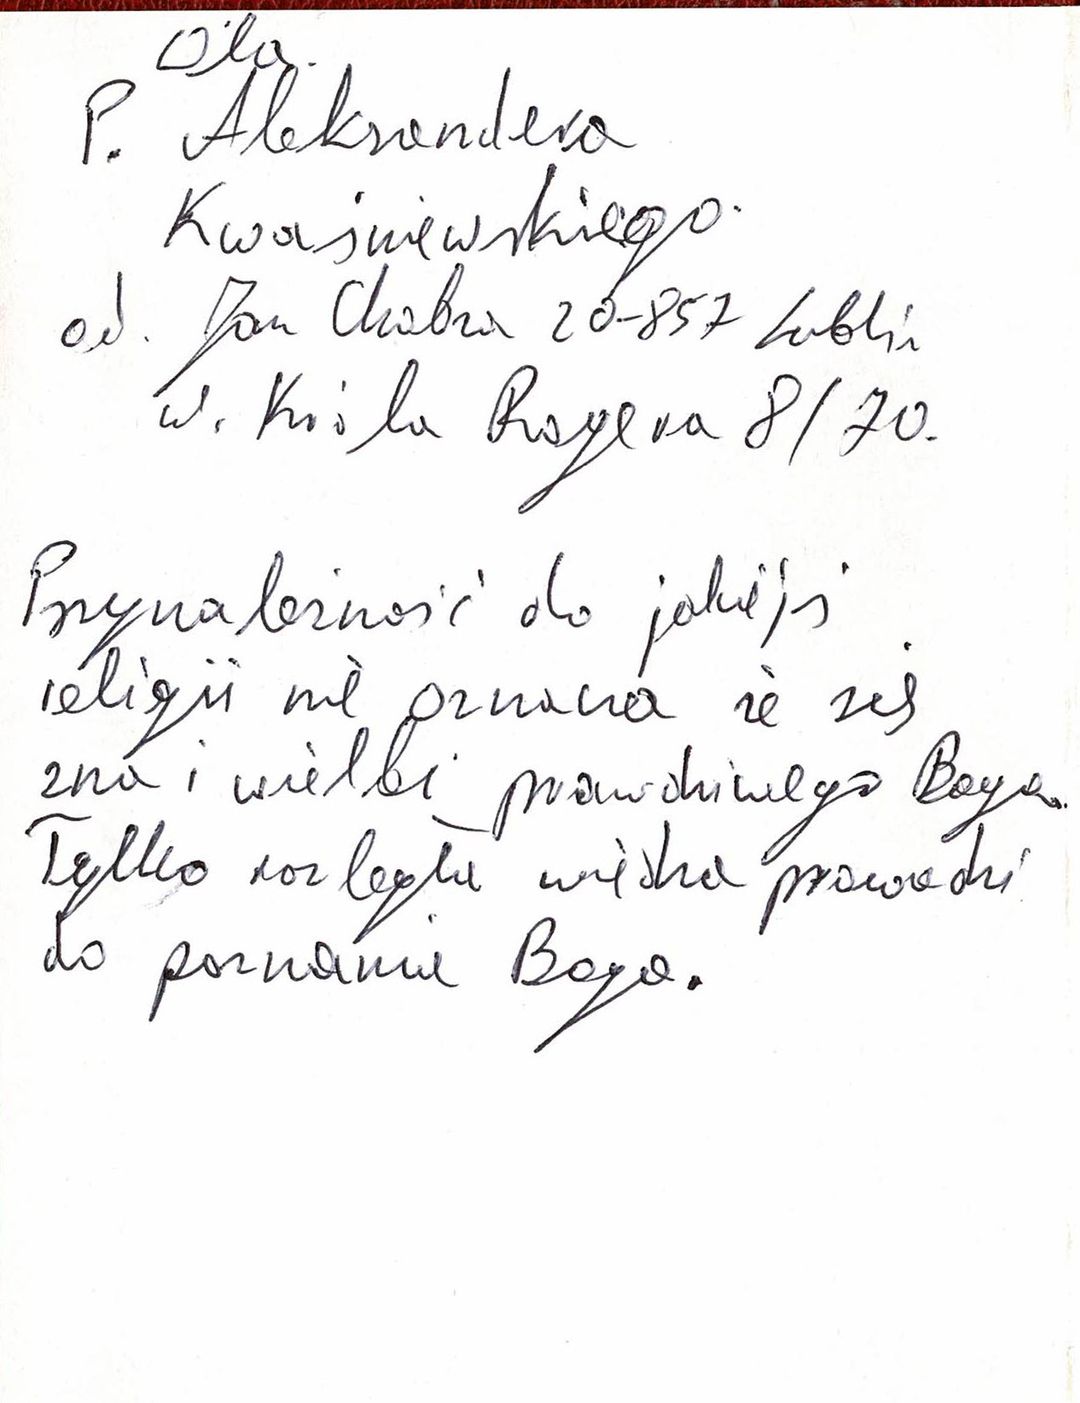 Dla.
P. Aleksandera
Kwaśniewskiego.
od. Jan Chabza 20-857 Lublin
ul. Króla Rogera 8/70.
Przynależność do jakiejś
religii nie oznacza że się
zna i wielbi prawdziwego Boga.
Tylko rozległa wiedza prowadzi
do poznanie Boga.